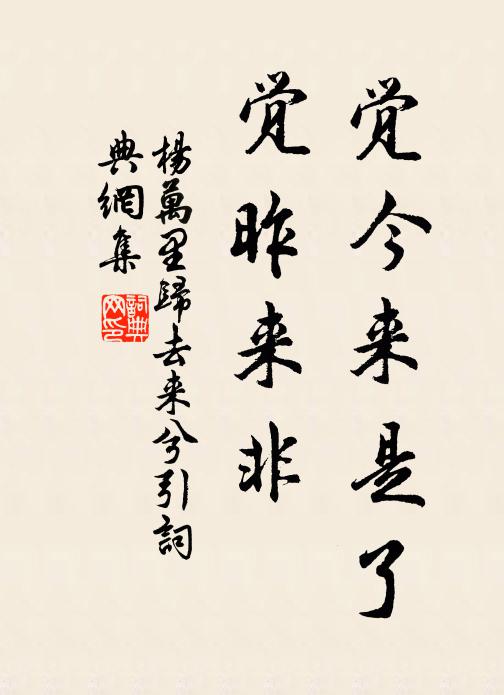 觉今来是了
觉昨来非
楊萬里歸去来兮引詞
典網集
詞典
网印